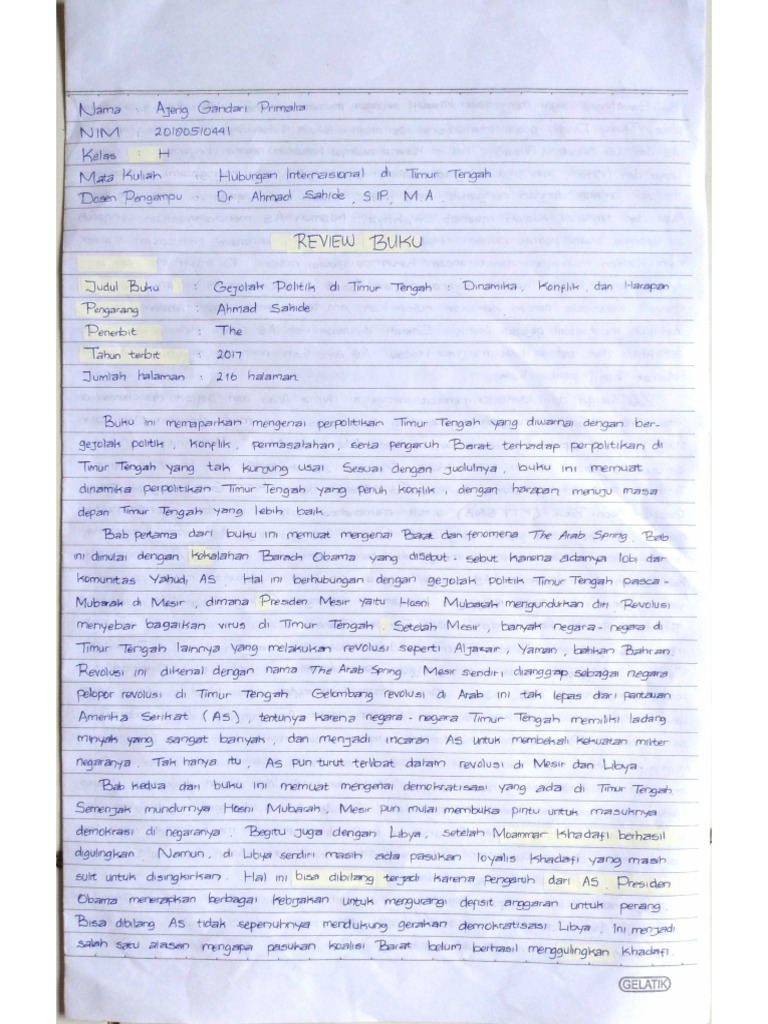 Nama : Ajeng Gandari Primalia
NIM : 20180510441
Kelas : H
Mata Kuliah : Hubungan Internasional di Timur Tengah
Dosen Pengampu : Dr. Ahmad Sahide, S.IP, M.A
REVIEW BUKU
Judul Buku : Gejolak Politik di Timur Tengah : Dinamika, Konflik, dan Harapan
Pengarang : Ahmad Sahide
Penerbit : The
Tahun terbit : 2017
Jumlah halaman : 216 halaman
Buku ini memaparkan mengenai perpolitikan Timur Tengah yang diwarnai dengan ber-
gejolak politik, konflik, permasalahan, serta pengaruh Barat terhadap perpolitikan di
Timur Tengah yang tak kunjung usai. Sesuai dengan judulnya, buku ini memuat
dinamika perpolitikan Timur Tengah yang penuh konflik, dengan harapan menuju masa
depan Timur Tengah yang lebih baik.
Bab pertama dari buku ini memuat mengenai Barat dan fenomena The Arab Spring. Bab
ini dimulai dengan kekalahan Barach Obama yang disebut-sebut karena adanya lobi dar
komunitas Yahudi AS. Hal ini berhubungan dengan gejolak politik Timur Tengah pasca-
Mubarak di Mesir, dimana Presiden Mesir yaitu Hosni Mubarak mengundurkan diri. Revolusi
menyebar bagaikan virus di Timur Tengah. Setelah Mesir, banyak negara-negara di
Timur Tengah lainnya yang melakukan revolusi seperti Aljazair, Yaman, bahkan Bahrain.
Revolusi ini dikenal dengan nama The Arab Spring. Mesir sendiri dianggap sebagai negara
pelopor revolusi di Timur Tengah. Gelombang revolusi di Arab ini tak lepas dari pantauan
Amerika Serikat (AS), tentunya karena negara-negara Timur Tengah memiliki ladang
minyak yang sangat banyak, dan menjadi incaran AS untuk membekali kekuatan militer
negaranya. Tak hanya itu, AS pun turut terlibat dalam revolusi di Mesir dan Libya.
Bab kedua dari buku ini memuat mengenai demokratisasi yang ada di Timur Tengah.
Semenjak mundurnya Hosni Mubarak, Mesir pun mulai membuka pintu untuk masuknya
demokrasi di negaranya. Begitu juga dengan Libya, setelah Moammar Khadafi berhasil
digulingkan. Namun, di Libya sendiri masih ada pasukan loyalis Khadafi yang masih
sulit untuk disingkirkan. Hal ini bisa dibilang terjadi karena pengaruh dari AS. Presiden
Obama menerapkan berbagai kebijakan untuk mengurangi depisit anggaran untuk perang.
Bisa dibilang AS tidak sepenuhnya mendukung gerakan demokratisasi Libya. Ini menjadi
salah satu alasan mengapa pasukan koalisi Barat belum berhasil menggulingkan Khadafi.
GELATIK